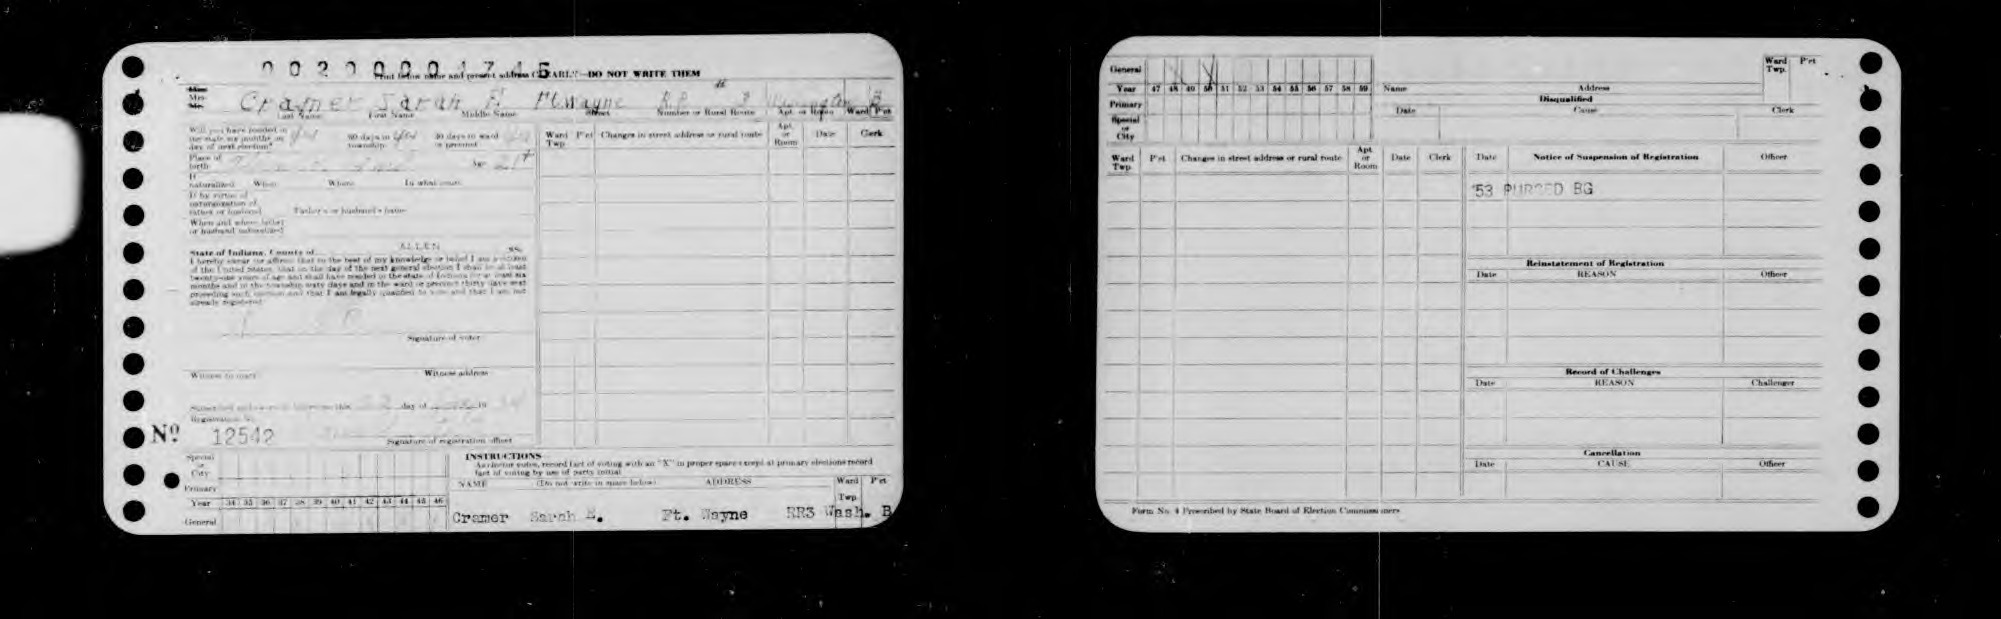 0020001745
Print below name and present address CLEARLY—DO NOT WRITE THEM
Miss
Mrs.
Mr.
Cramer Sarah E Ft Wayne R.R. 3 Washington B
Last Name First Name Middle Name Street Number or Rural Route Apt. or Room Ward P'ct
Will you have resided in the state six months on day of next election?
60 days in township
30 days in ward or precinct
Place of birth
Age 21+
If naturalized When Where In what court
If by virtue of naturalization of father or husband Father's or husband's name
When and where father or husband naturalized?
State of Indiana, County of ALLEN ss.
I hereby swear (or affirm) that to the best of my knowledge or belief I am a citizen
of the United States, that on the day of the next general election I shall be at least
twenty-one years of age and shall have resided in the state of Indiana for at least six
months and in the township sixty days and in the ward or precinct thirty days next
preceding such election and that I am legally qualified to vote and that I am not
already registered.
Signature of voter
Witness to mark Witness address
Subscribed and sworn to before me this day of 19
Registration No.
Nº 12542
Signature of registration officer
Ward Twp P'ct Changes in street address or rural route Apt. or Room Date Clerk
Special or City
Primary
Year 34 35 36 37 38 39 40 41 42 43 44 45 46
General
INSTRUCTIONS
As elector votes, record fact of voting with an "X" in proper space except at primary elections record
fact of voting by use of party initial
NAME (Do not write in space below) ADDRESS Ward Twp P'ct
Cramer Sarah E. Ft. Wayne RR3 Wash. B
General
Year 47 48 49 50 51 52 53 54 55 56 57 58 59
Primary
Special or City
Ward Twp. P'ct
Name Address
Disqualified
Date Cause Clerk
Ward Twp P'ct Changes in street address or rural route Apt. or Room Date Clerk
Date Notice of Suspension of Registration Officer
'53 PURGED BG
Reinstatement of Registration
Date REASON Officer
Record of Challenges
Date REASON Challenger
Cancellation
Date CAUSE Officer
Form No. 4 Prescribed by State Board of Election Commissioners